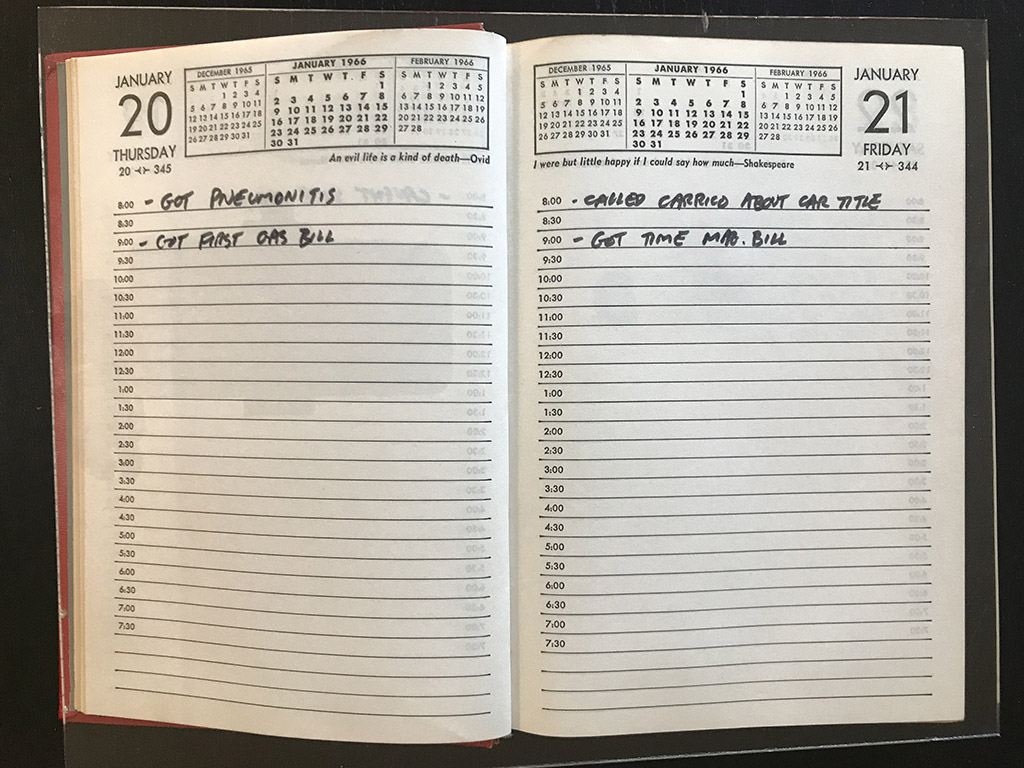 JANUARY
20
THURSDAY
20 -<>- 345
DECEMBER 1965
S M T W T F S
1 2 3 4
5 6 7 8 9 10 11
12 13 14 15 16 17 18
19 20 21 22 23 24 25
26 27 28 29 30 31
JANUARY 1966
S M T W T F S
1
2 3 4 5 6 7 8
9 10 11 12 13 14 15
16 17 18 19 20 21 22
23 24 25 26 27 28 29
30 31
FEBRUARY 1966
S M T W T F S
1 2 3 4 5
6 7 8 9 10 11 12
13 14 15 16 17 18 19
20 21 22 23 24 25 26
27 28
An evil life is a kind of death—Ovid
8:00 - GOT PNEUMONITIS
8:30
9:00 - GOT FIRST GAS BILL
9:30
10:00
10:30
11:00
11:30
12:00
12:30
1:00
1:30
2:00
2:30
3:00
3:30
4:00
4:30
5:00
5:30
6:00
6:30
7:00
7:30
DECEMBER 1965
S M T W T F S
1 2 3 4
5 6 7 8 9 10 11
12 13 14 15 16 17 18
19 20 21 22 23 24 25
26 27 28 29 30 31
JANUARY 1966
S M T W T F S
1
2 3 4 5 6 7 8
9 10 11 12 13 14 15
16 17 18 19 20 21 22
23 24 25 26 27 28 29
30 31
FEBRUARY 1966
S M T W T F S
1 2 3 4 5
6 7 8 9 10 11 12
13 14 15 16 17 18 19
20 21 22 23 24 25 26
27 28
JANUARY
21
FRIDAY
21 -<>- 344
I were but little happy if I could say how much—Shakespeare
8:00 - CALLED CARRICO ABOUT CAR TITLE
8:30
9:00 - GOT TIME MAG. BILL
9:30
10:00
10:30
11:00
11:30
12:00
12:30
1:00
1:30
2:00
2:30
3:00
3:30
4:00
4:30
5:00
5:30
6:00
6:30
7:00
7:30